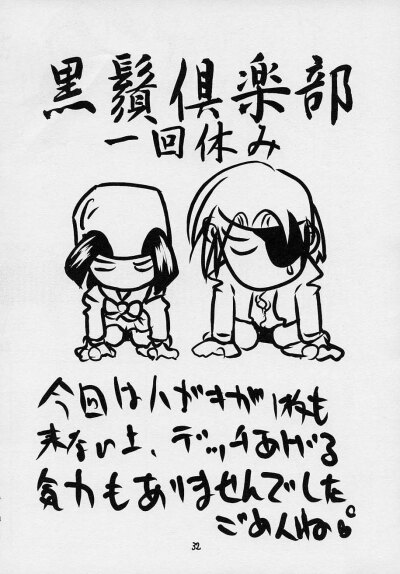 黒鬚倶楽部
一回休み
今回はハガキが1枚も
来ない上、デッチあげる
気力もありませんでした。
ごめんね。
32